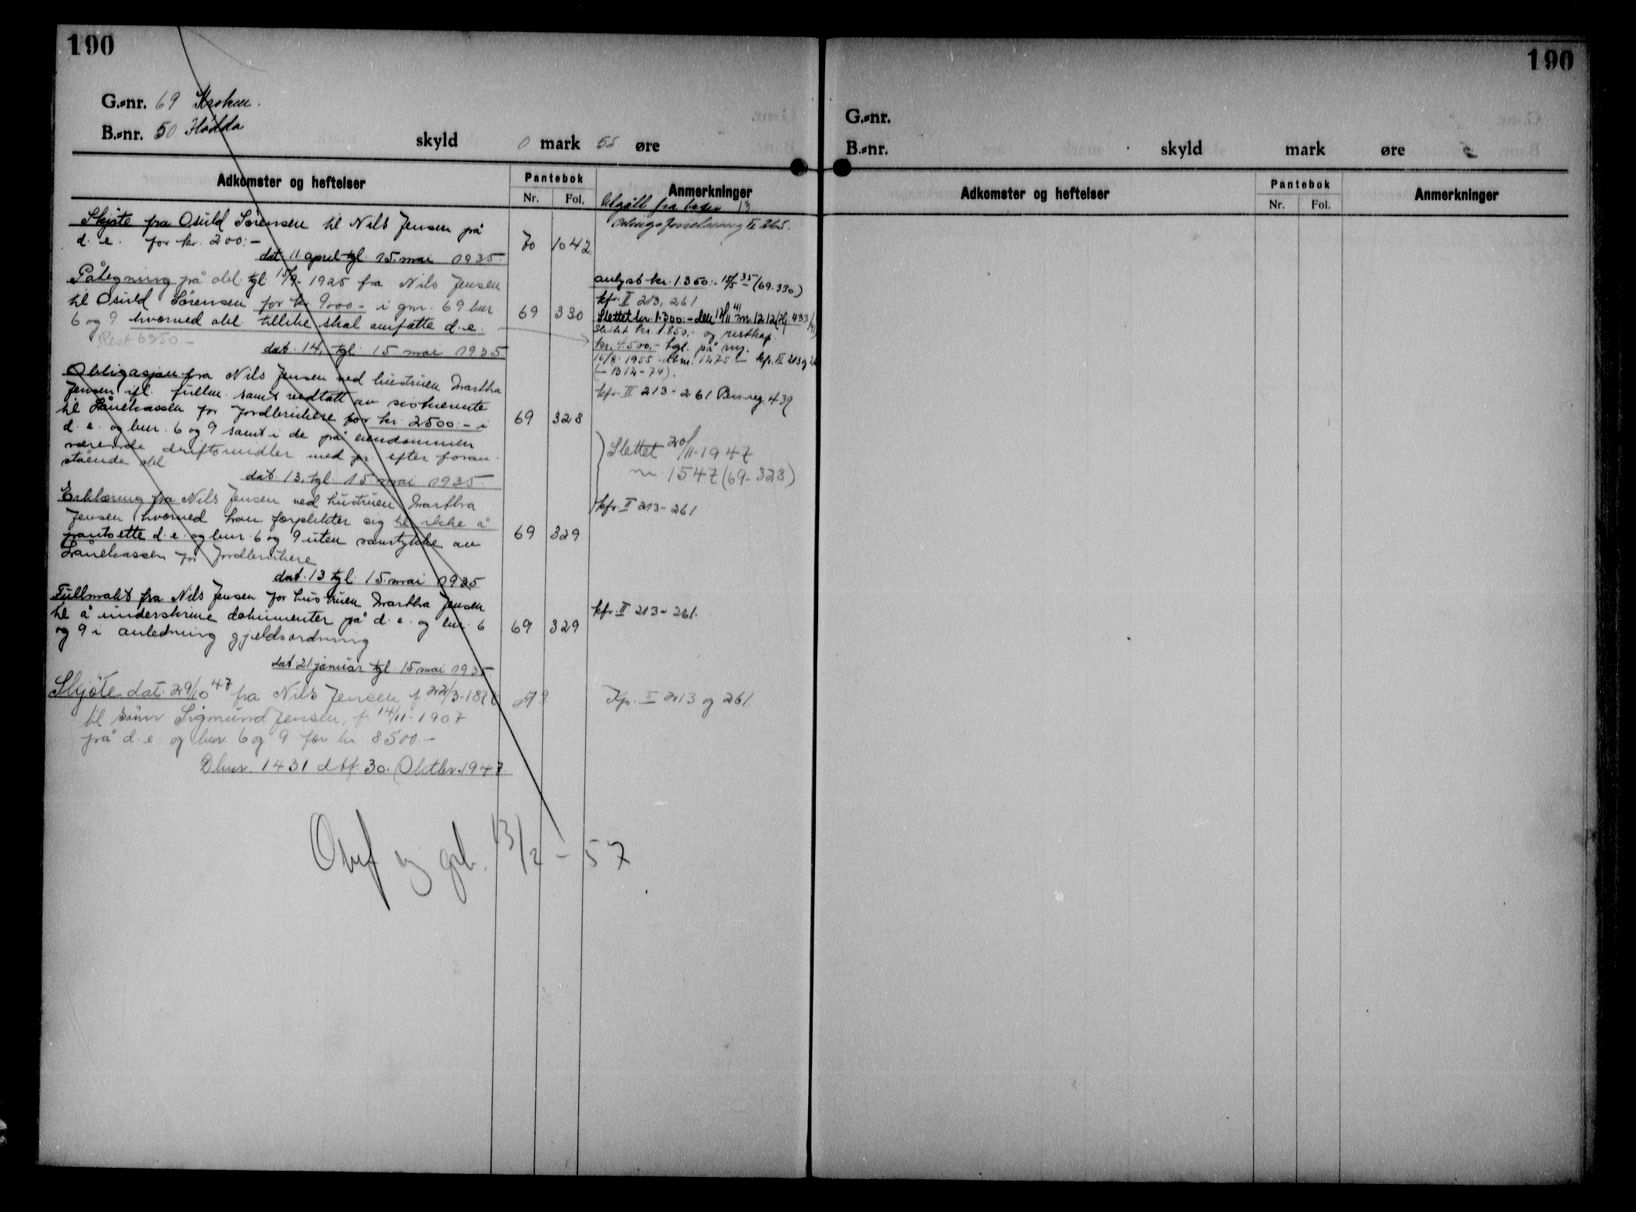 190
G.-nr. 69 Kroken.
B.-nr. 50 Hodda
skyld 0 mark 55 øre
Adkomster og heftelser
Pantebok
Nr. Fol.
Anmerkninger
Utgått fra bnr 13
II 265.
Skjøte fra Osuld Sørensen til Nils Jensen på
d. e. for kr. 200:-
70 1042
dat 11 april tgl. 15. mai 1935.
Påtegning på obl. tgl 15/9-1925 fra Nils Jensen
til Osuld Sørensen for kr 9000- i gnr. 69 bnr
6 og 9 hvorved obl. tillike skal omfatte d. e.
Rest 6350.-
69 330
dat. 14, tgl. 15 mai 1935
avlyst kr. 1350:- 15/5-35 (69-330)
kfr. II 213, 261
Slettet kr. 1.300:- den
Slettet kr. 1850.- og restkap
kr. 4500.- tgl. på ny.
16/8-1955 dbnr. 1475 - kfr. II 213 og
Obligasjon fra Nils Jensen med hustruen Martha
Jensen ifl. fullm. samt vedtatt av sistnevnte
til Lånekassen for Jordbrukere for kr. 2500:- i
d. e. og bnr. 6 og 9 samt i de på eiendommen
værende driftsmidler med pr. efter foran-
stående obl
69 328
kfr. II 213 - 261 Pers reg 439
dat 13, tgl. 15 mai 1935.
Slettet 20/11-1947
nr. 1547 (69-328)
Erklæring fra Nils Jensen med hustruen Martha
Jensen hvorved han forplikter sig til ikke å
pantsette d. e. og bnr. 6 og 9 uten samtykke av
Lånekassen for Jordbrukere
69 329
kfr. II 213 - 261
dat. 13 tgl. 15. mai 1935
Fullmakt fra Nils Jensen for hustruen Martha Jensen
til å underskrive dokumenter på d. e. og bnr. 6
og 9 i anledning gjeldsordning
69 329
kfr. II 213 - 261.
dat 21 januar tgl. 15 mai 1935
Skjøte dat. 29/10 47 fra Nils Jensen f 22/3-
til sønn Sigmund Jensen, f. 14/11-1907
på d. e. og bnr. 6 og 9 for kr. 8500.-
Kfr. II 213 og 261
Dbnr. 1431 dbf. 30. Oktbr. 1947.
Ovf ny grb. 13/2 - 57
190
G.-nr.
B.-nr.
skyld mark øre
Adkomster og heftelser
Pantebok
Nr. Fol.
Anmerkninger